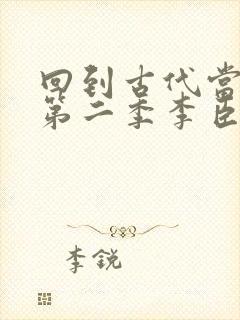 回到古代当
第二季李臣
李锐